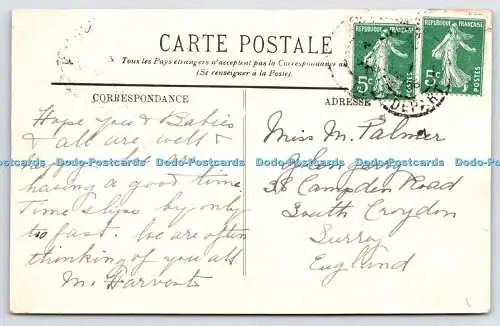 CARTE POSTALE
Tous les Pays étrangers n'acceptent pas la Correspondance au
(Se renseigner à la Poste)
CORRESPONDANCE
ADRESSE
REPUBLIQUE FRANÇAISE
5c
POSTES
REPUBLIQUE FRANÇAISE
5c
POSTES
DEPART
Hope you & Babies
& all are well &
happy
having a good time.
Time slips by only
to fast. We are often
thinking of you all
M. Harvost
Miss M. Palmer
38 Campden Road
South Croydon
Surrey
England
Dodo-Postcards Dodo-Postcards Dodo-Postcards Dodo-Postcards